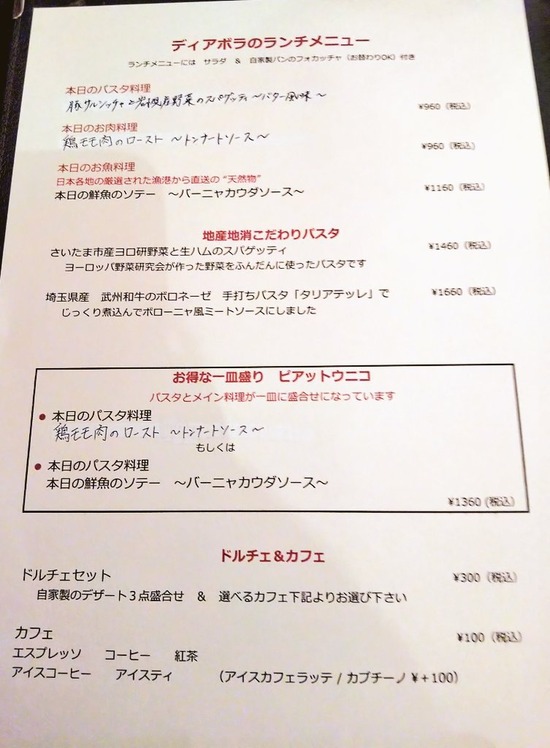 ディアボラのランチメニュー
ランチメニューには サラダ & 自家製パンのフォカッチャ(お替わりOK)付き
本日のパスタ料理
豚サルシッチャと岩槻産野菜のスパゲッティ~バター風味~ ¥960(税込)
本日のお肉料理
鶏モモ肉のロースト ~トンナートソース~ ¥960(税込)
本日のお魚料理
日本各地の厳選された漁港から直送の "天然物"
本日の鮮魚のソテー ~バーニャカウダソース~ ¥1160(税込)
地産地消こだわりパスタ
さいたま市産ヨロ研野菜と生ハムのスパゲッティ ¥1460(税込)
ヨーロッパ野菜研究会が作った野菜をふんだんに使ったパスタです
埼玉県産 武州和牛のボロネーゼ 手打ちパスタ「タリアテッレ」で ¥1660(税込)
じっくり煮込んでボローニャ風ミートソースにしました
お得な一皿盛り ピアットウニコ
パスタとメイン料理が一皿に盛合せになっています
● 本日のパスタ料理
鶏モモ肉のロースト ~トンナートソース~
もしくは
● 本日のパスタ料理
本日の鮮魚のソテー ~バーニャカウダソース~
¥1360(税込)
ドルチェ&カフェ
ドルチェセット ¥300(税込)
自家製のデザート3点盛合せ & 選べるカフェ下記よりお選び下さい
カフェ ¥100(税込)
エスプレッソ コーヒー 紅茶
アイスコーヒー アイスティ (アイスカフェラッテ / カプチーノ ¥+100)